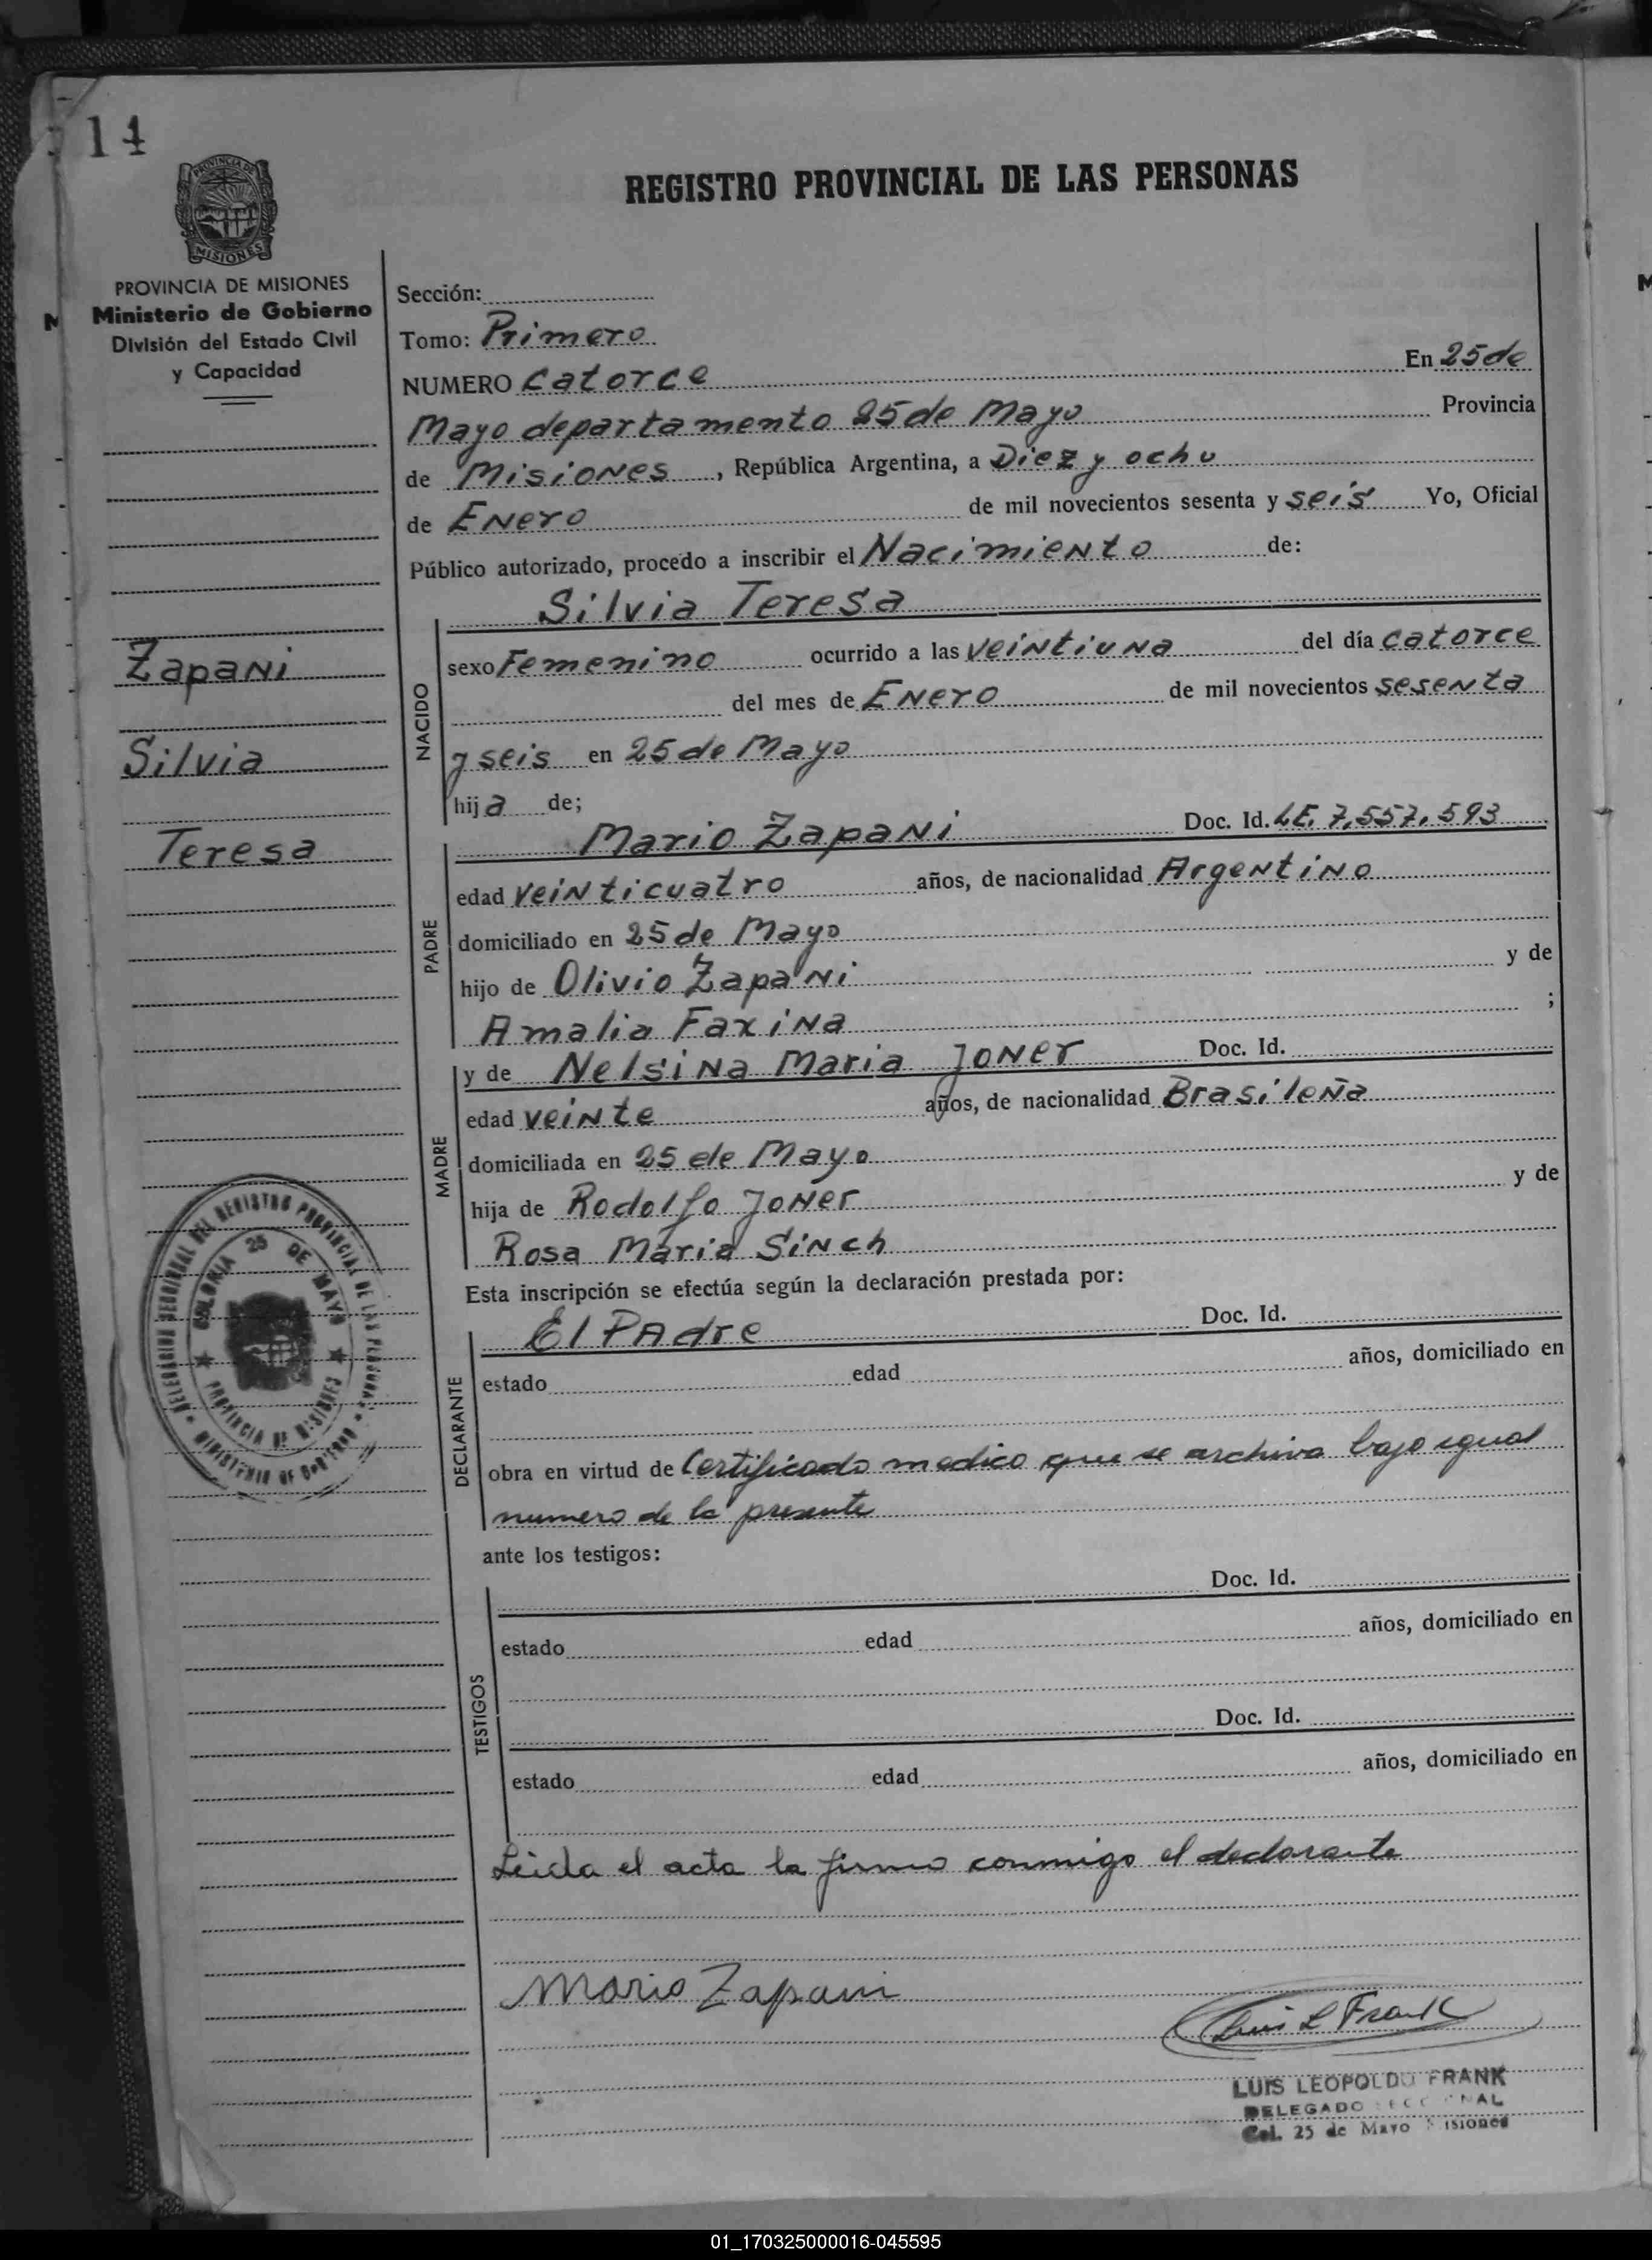 14
REGISTRO PROVINCIAL DE LAS PERSONAS
PROVINCIA DE
MISIONES
PROVINCIA DE MISIONES
Ministerio de Gobierno
División del Estado Civil
y Capacidad
Zapani
Silvia
Teresa
DEL REGISTRO PROVINCIAL DE LAS PERSONAS
COLONIA 25 DE MAYO
PROVINCIA DE MISIONES
MINISTERIO DE GOBIERNO
Sección:
Tomo: Primero
NUMERO catorce En 25 de
Mayo departamento 25 de Mayo Provincia
de Misiones, República Argentina, a Diez y ocho
de Enero de mil novecientos sesenta y seis Yo, Oficial
Público autorizado, procedo a inscribir el Nacimiento de:
Silvia Teresa
NACIDO
sexo Femenino ocurrido a las veintiuna del día catorce
del mes de Enero de mil novecientos sesenta
y seis en 25 de Mayo
hija de;
Mario Zapani Doc. Id. LE. 7.557.593
PADRE
edad veinticuatro años, de nacionalidad Argentino
domiciliado en 25 de Mayo
hijo de Olivio Zapani y de
Amalia Faxina ;
y de Nelsina Maria Joner Doc. Id.
MADRE
edad veinte años, de nacionalidad Brasileña
domiciliada en 25 de Mayo
hija de Rodolfo Joner y de
Rosa Maria Sinch
Esta inscripción se efectúa según la declaración prestada por:
El Padre Doc. Id.
DECLARANTE
estado edad años, domiciliado en
obra en virtud de Certificado medico que se archiva bajo igual
numero de la presente
ante los testigos:
Doc. Id.
TESTIGOS
estado edad años, domiciliado en
Doc. Id.
estado edad años, domiciliado en
Leida el acta la firma conmigo el declarante
Mario Zapani
Luis L Frank
LUIS LEOPOLDO FRANK
DELEGADO
Col. 25 de Mayo Misiones
01_170325000016-045595